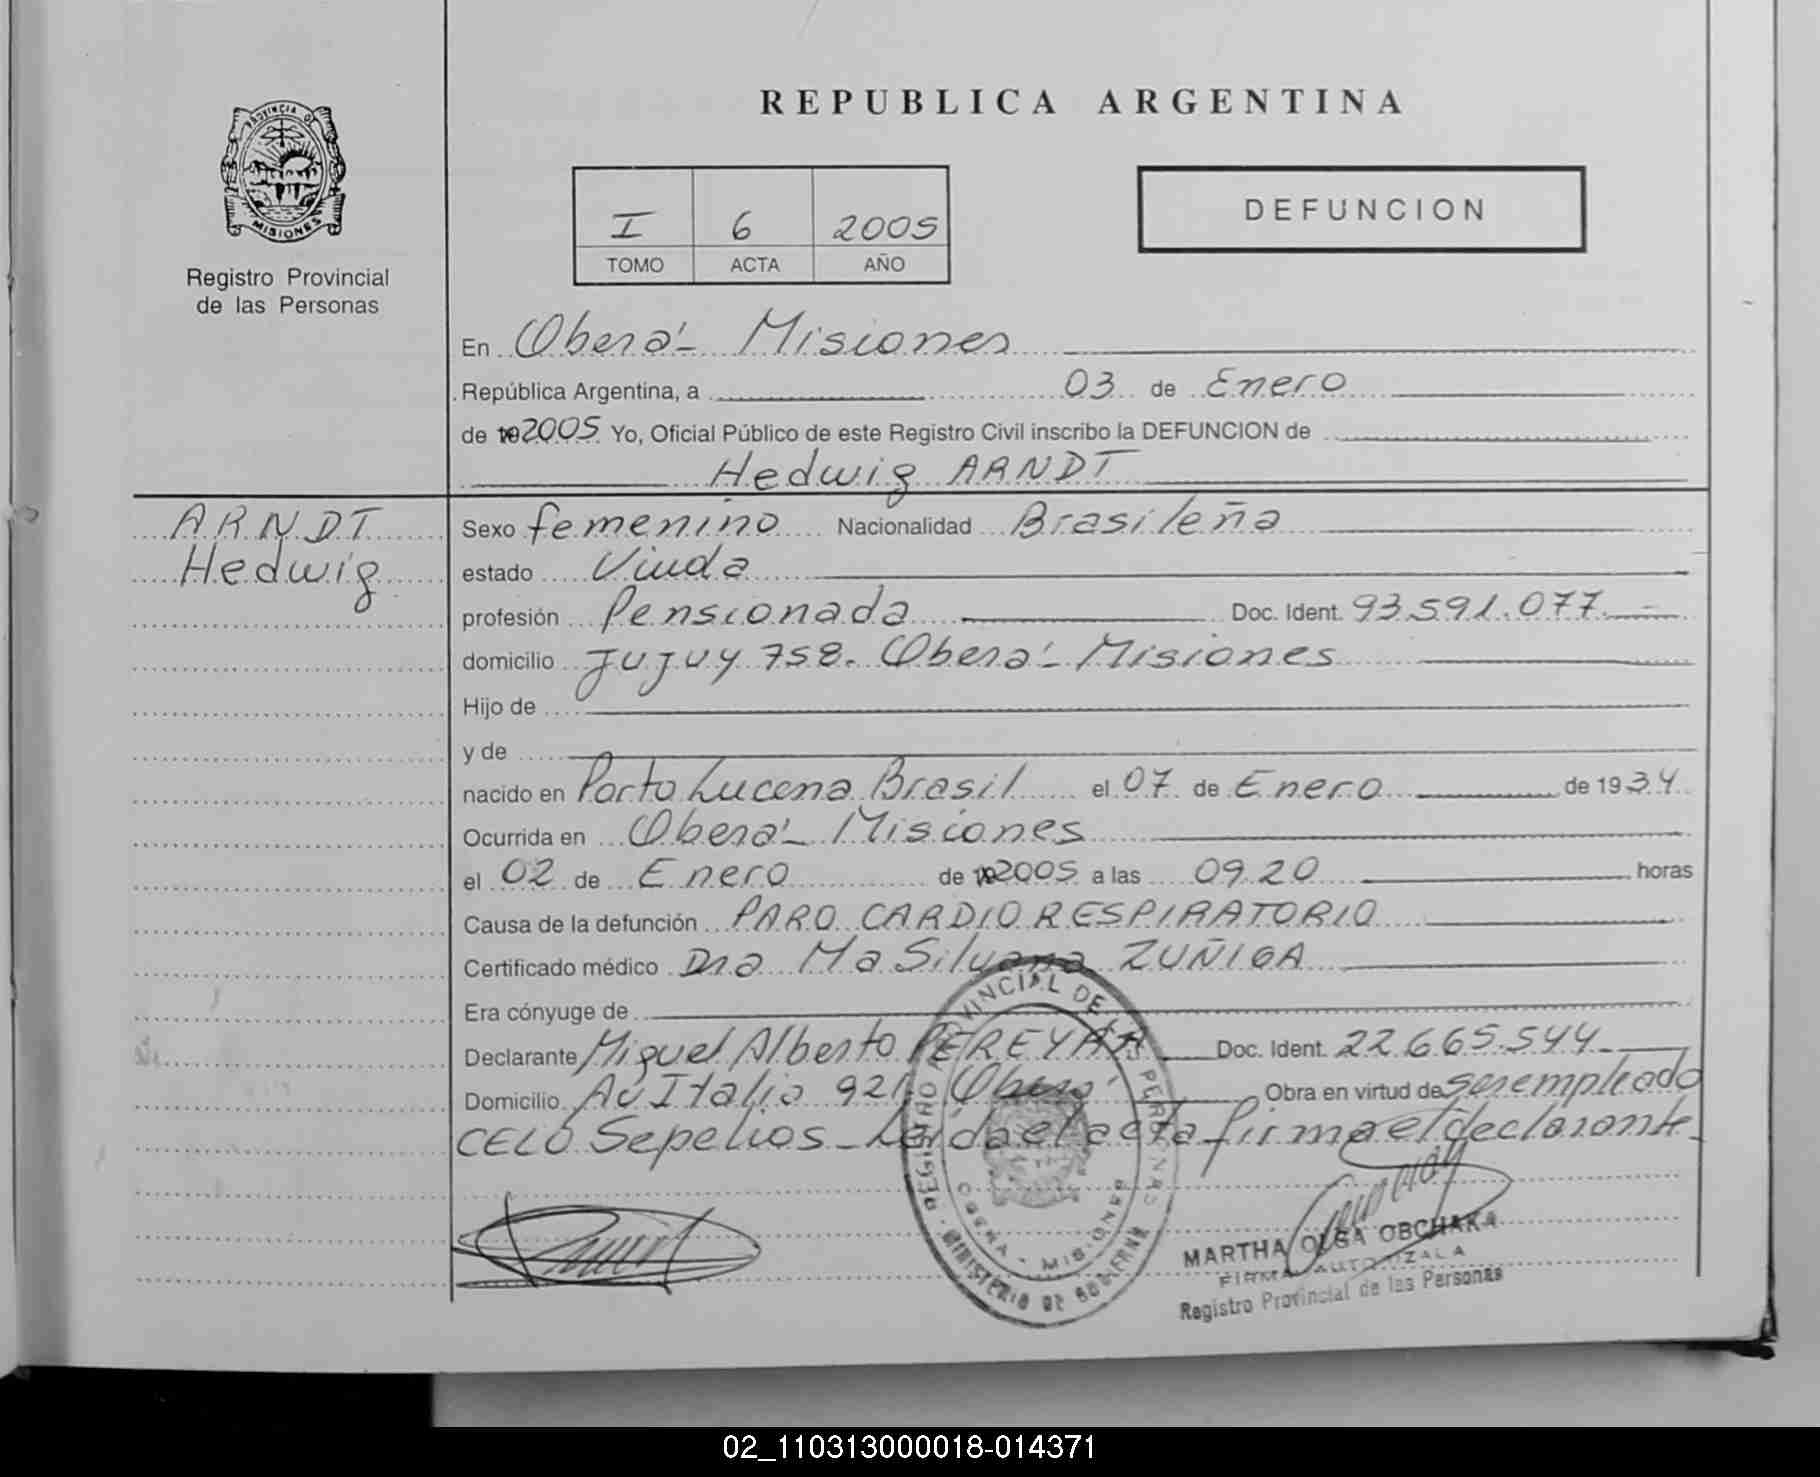 PROVINCIA DE
MISIONES
Registro Provincial
de las Personas
REPUBLICA ARGENTINA
I 6 2005
TOMO ACTA AÑO
DEFUNCION
En Oberá - Misiones
República Argentina, a 03 de Enero
de 2005 Yo, Oficial Público de este Registro Civil inscribo la DEFUNCION de
Hedwig ARNDT
ARNDT
Hedwig
Sexo femenino Nacionalidad Brasileña
estado Viuda
profesión Pensionada Doc. Ident. 93.591.077.-
domicilio Jujuy 758. Oberá - Misiones
Hijo de
y de
nacido en Porto Lucena Brasil el 07 de Enero de 1934
Ocurrida en Oberá - Misiones
el 02 de Enero de 2005 a las 09.20 horas
Causa de la defunción PARO CARDIO RESPIRATORIO
Certificado médico Dra Ma Silvana ZUÑIGA
Era cónyuge de
Declarante Miguel Alberto PEREYRA Doc. Ident. 22.665.544
Domicilio Av Italia 921 Oberá Obra en virtud de ser empleado
CELO Sepelios - Leída el acta firma el declarante
REGISTRO PROVINCIAL DE LAS PERSONAS
MINISTERIO DE GOBIERNO
MISIONES
MARTHA OLGA OBCHAKA
FIRMA AUTORIZADA
Registro Provincial de las Personas
02_110313000018-014371